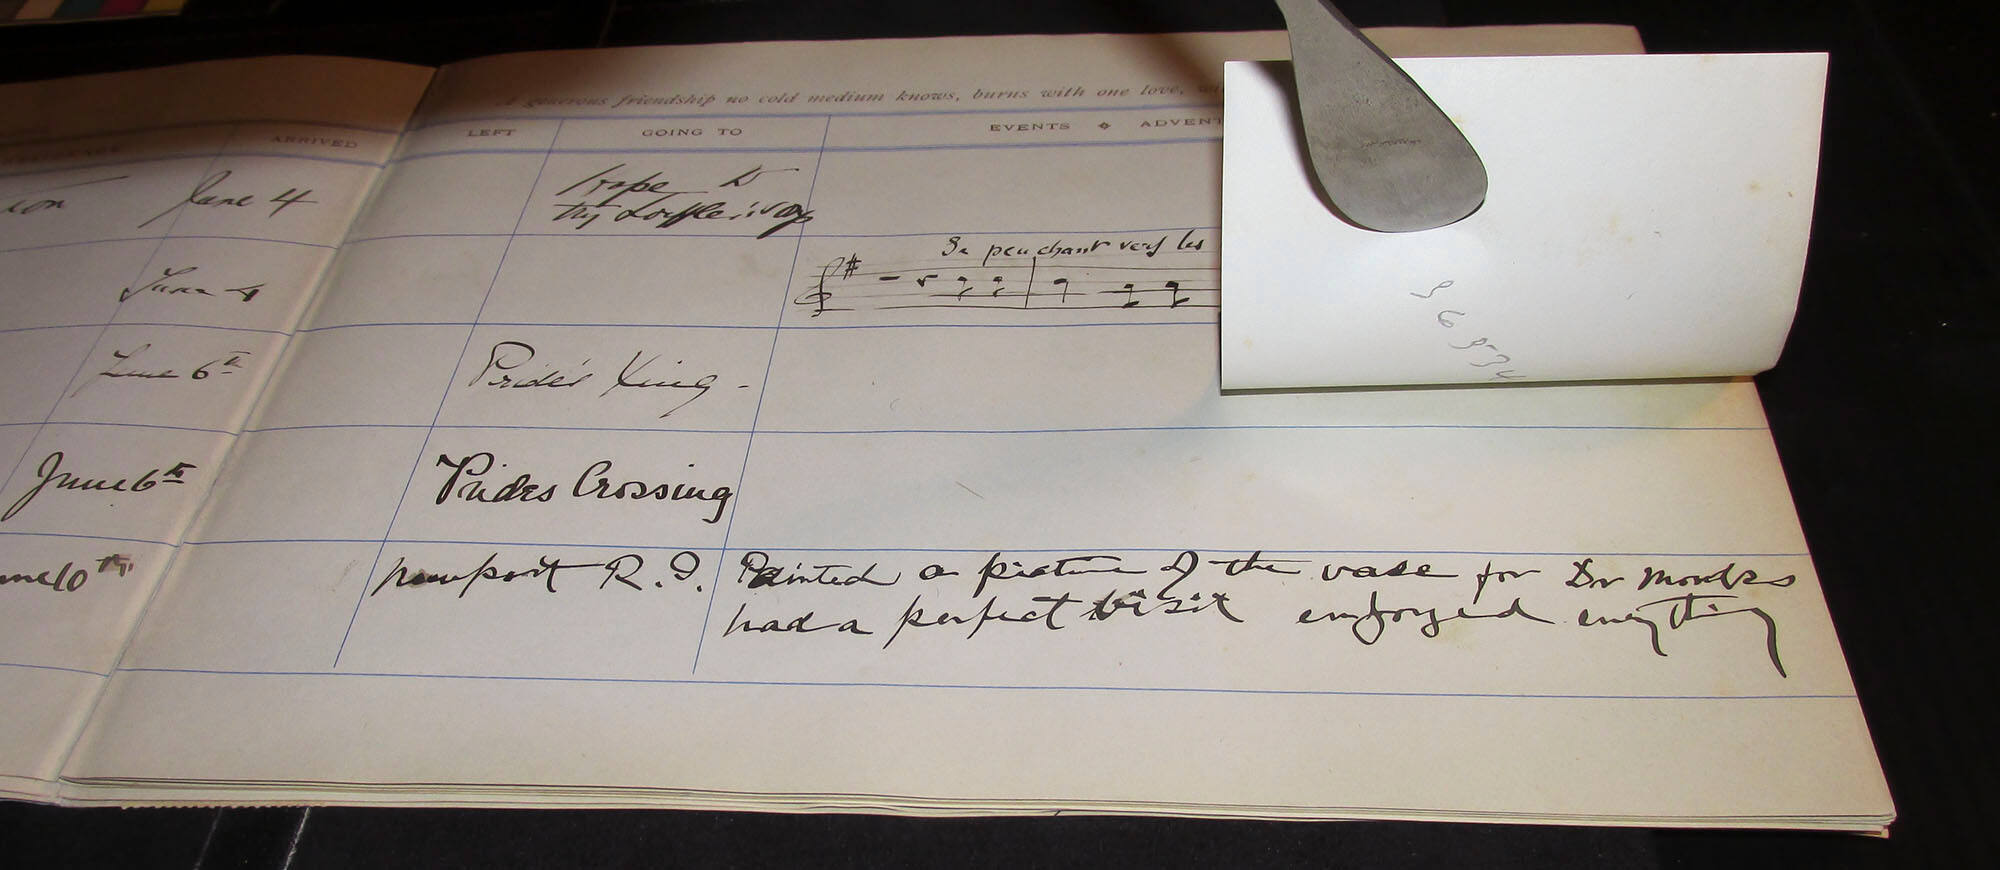 A generous friendship no cold medium knows, burns with one love,
ARRIVED LEFT GOING TO EVENTS ❖ ADVENT
June 4 Hope to
try Loeffler's song
Se penchant vers les
June 4
June 6th Pride's Xing -
June 6th Prides Crossing
10th. Newport R.I. Painted a picture of the vase for Dr Monks
had a perfect visit enjoyed everything